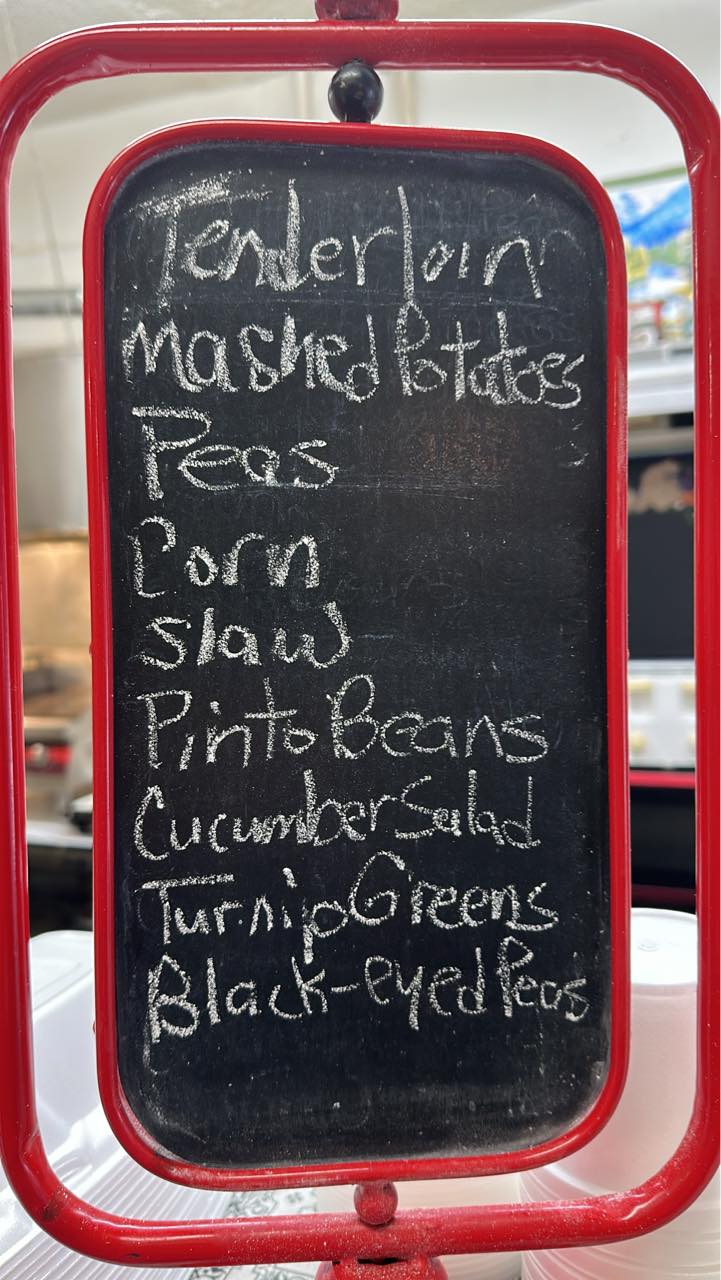 Tenderloin
Mashed Potatoes
Peas
Corn
Slaw
Pinto Beans
Cucumber Salad
Turnip Greens
Black-eyed Peas